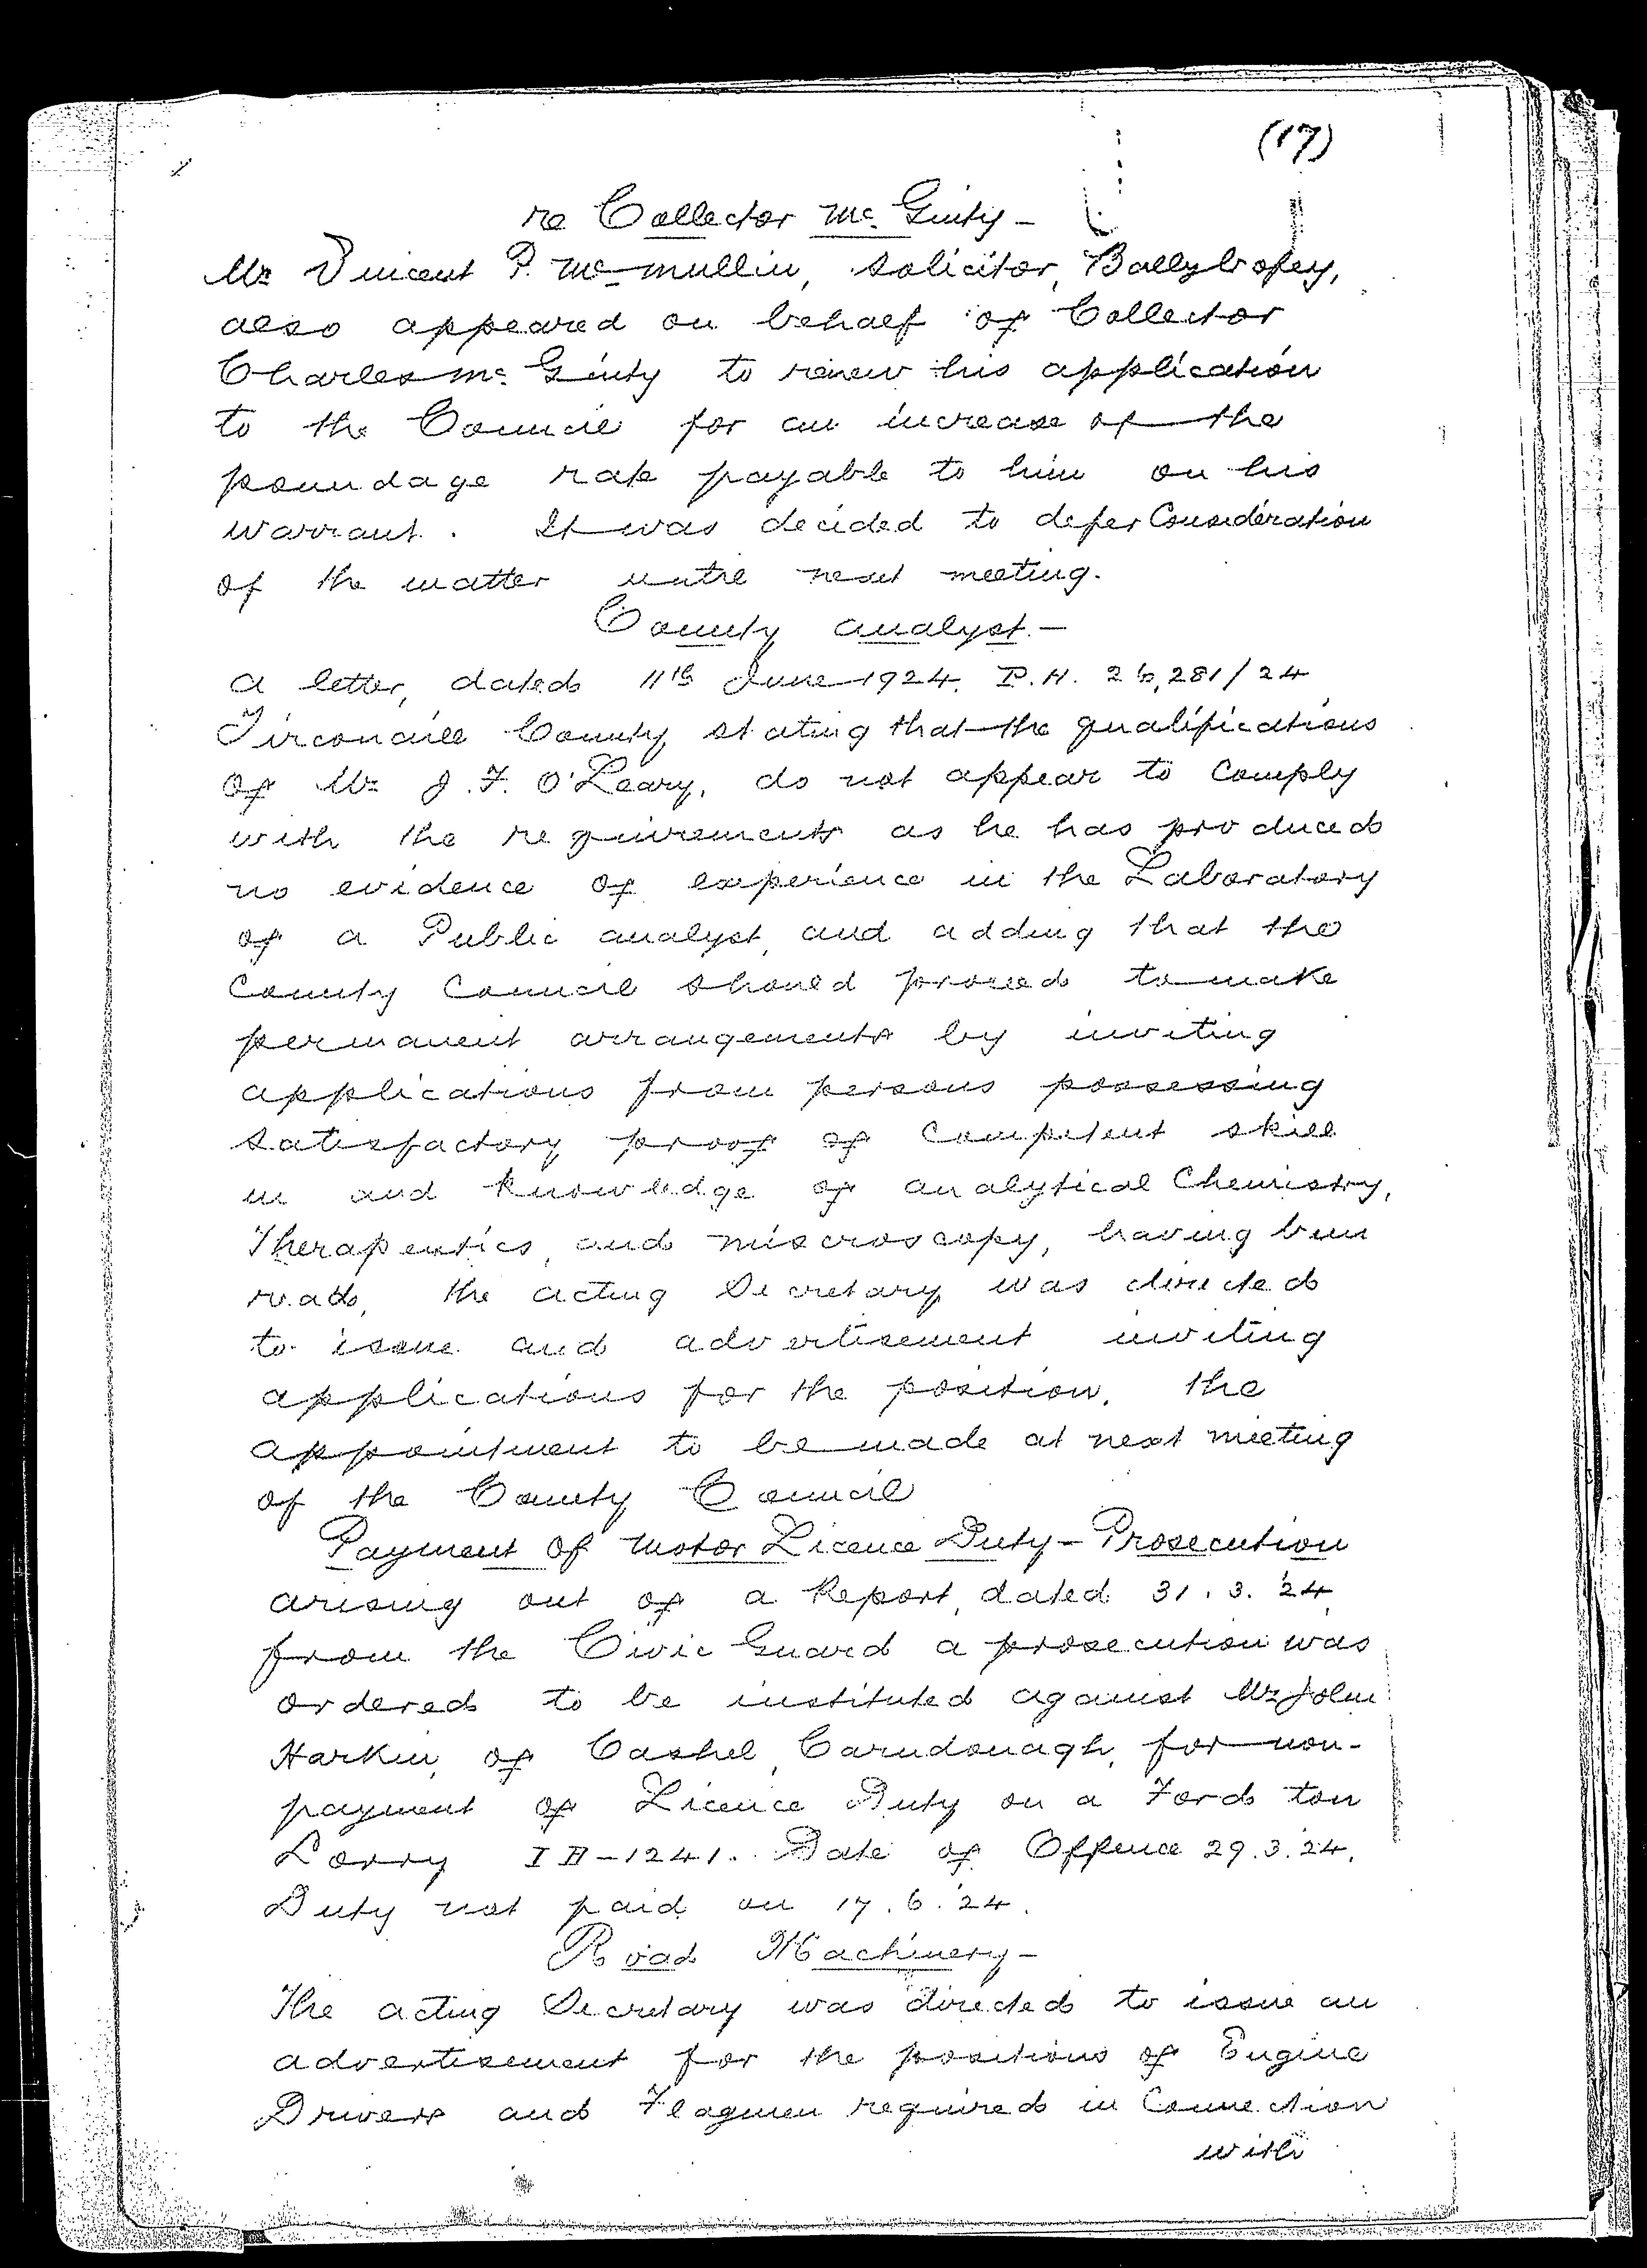 (17)
re Collector Mc. Ginty -
Mr Vincent P. McMullin, Solicitor, Ballybofey,
also appeared on behalf of Collector
Charles Mc. Ginty to renew his application
to the Council for an increase of the
poundage rate payable to him on his
warrant. It was decided to defer Consideration
of the matter until next meeting.
County Analyst. -
A letter, dated 11th June 1924, P.H. 26,281/24
Tirconaill County, stating that the qualifications
of Mr J. F. O'Leary, do not appear to Comply
with the requirements as he has produced
no evidence of experience in the Laboratory
of a Public analyst, and adding that the
County Council should proceed to make
permanent arrangements by inviting
applications from persons possessing
satisfactory proof of Competent skill
in and knowledge of analytical Chemistry,
Therapeutics, and miscroscopy, having been
read, the acting Secretary was directed
to issue and advertisement inviting
applications for the position, the
appointment to be made at next meeting
of the County Council
Payment of Motor Licence Duty - Prosecution
arising out of a Report, dated 31.3.'24,
from the Civic Guard a prosecution was
ordered to be instituted against Mr John
Harkin, of Cashel, Carndonagh, for non-
payment of Licence Duty on a Ford ton
Lorry IH-1241. Date of Offence 29.3.'24.
Duty not paid on 17.6.'24.
Road Machinery -
The acting Secretary was directed to issue an
advertisement for the positions of Engine
Drivers and Flagmen required in Connection
with